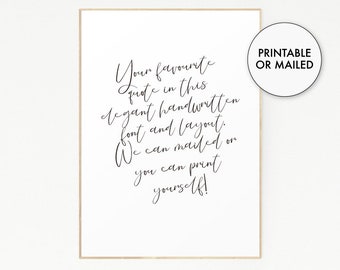 Your favourite
quote in this
elegant handwritten
font and layout.
We can mailed or
you can print
yourself!
PRINTABLE
OR MAILED